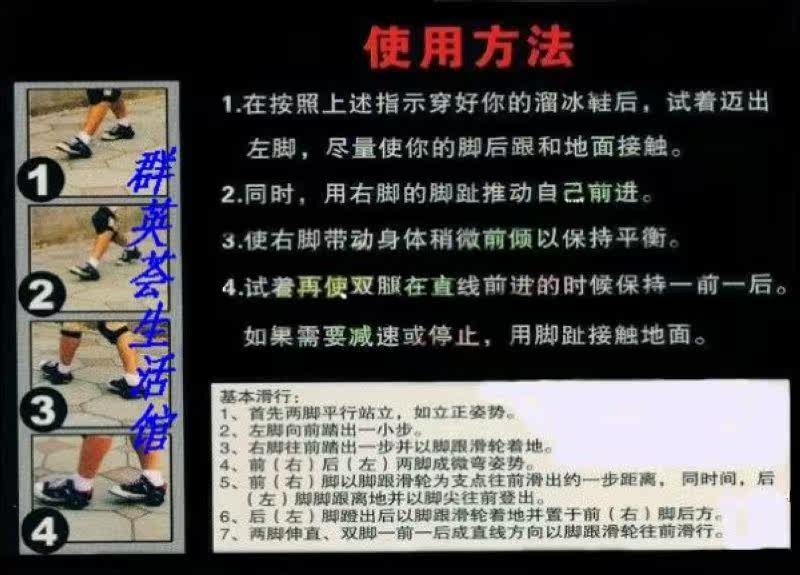 使用方法
1.在按照上述指示穿好你的溜冰鞋后，试着迈出
左脚，尽量使你的脚后跟和地面接触。
2.同时，用右脚的脚趾推动自己前进。
3.使右脚带动身体稍微前倾以保持平衡。
4.试着再使双腿在直线前进的时候保持一前一后。
如果需要减速或停止，用脚趾接触地面。
1
2
3
4
群英荟生活馆
基本滑行：
1、首先两脚平行站立，如立正姿势。
2、左脚向前踏出一小步。
3、右脚往前踏出一步并以脚跟滑轮着地。
4、前（右）后（左）两脚成微弯姿势。
5、前（右）脚以脚跟滑轮为支点往前滑出约一步距离， 同时间，后
（左）脚脚跟离地并以脚尖往前登出。
6、后（左）脚蹬出后以脚跟滑轮着地并置于前（右）脚后方。
7、两脚伸直、双脚一前一后成直线方向以脚跟滑轮往前滑行。